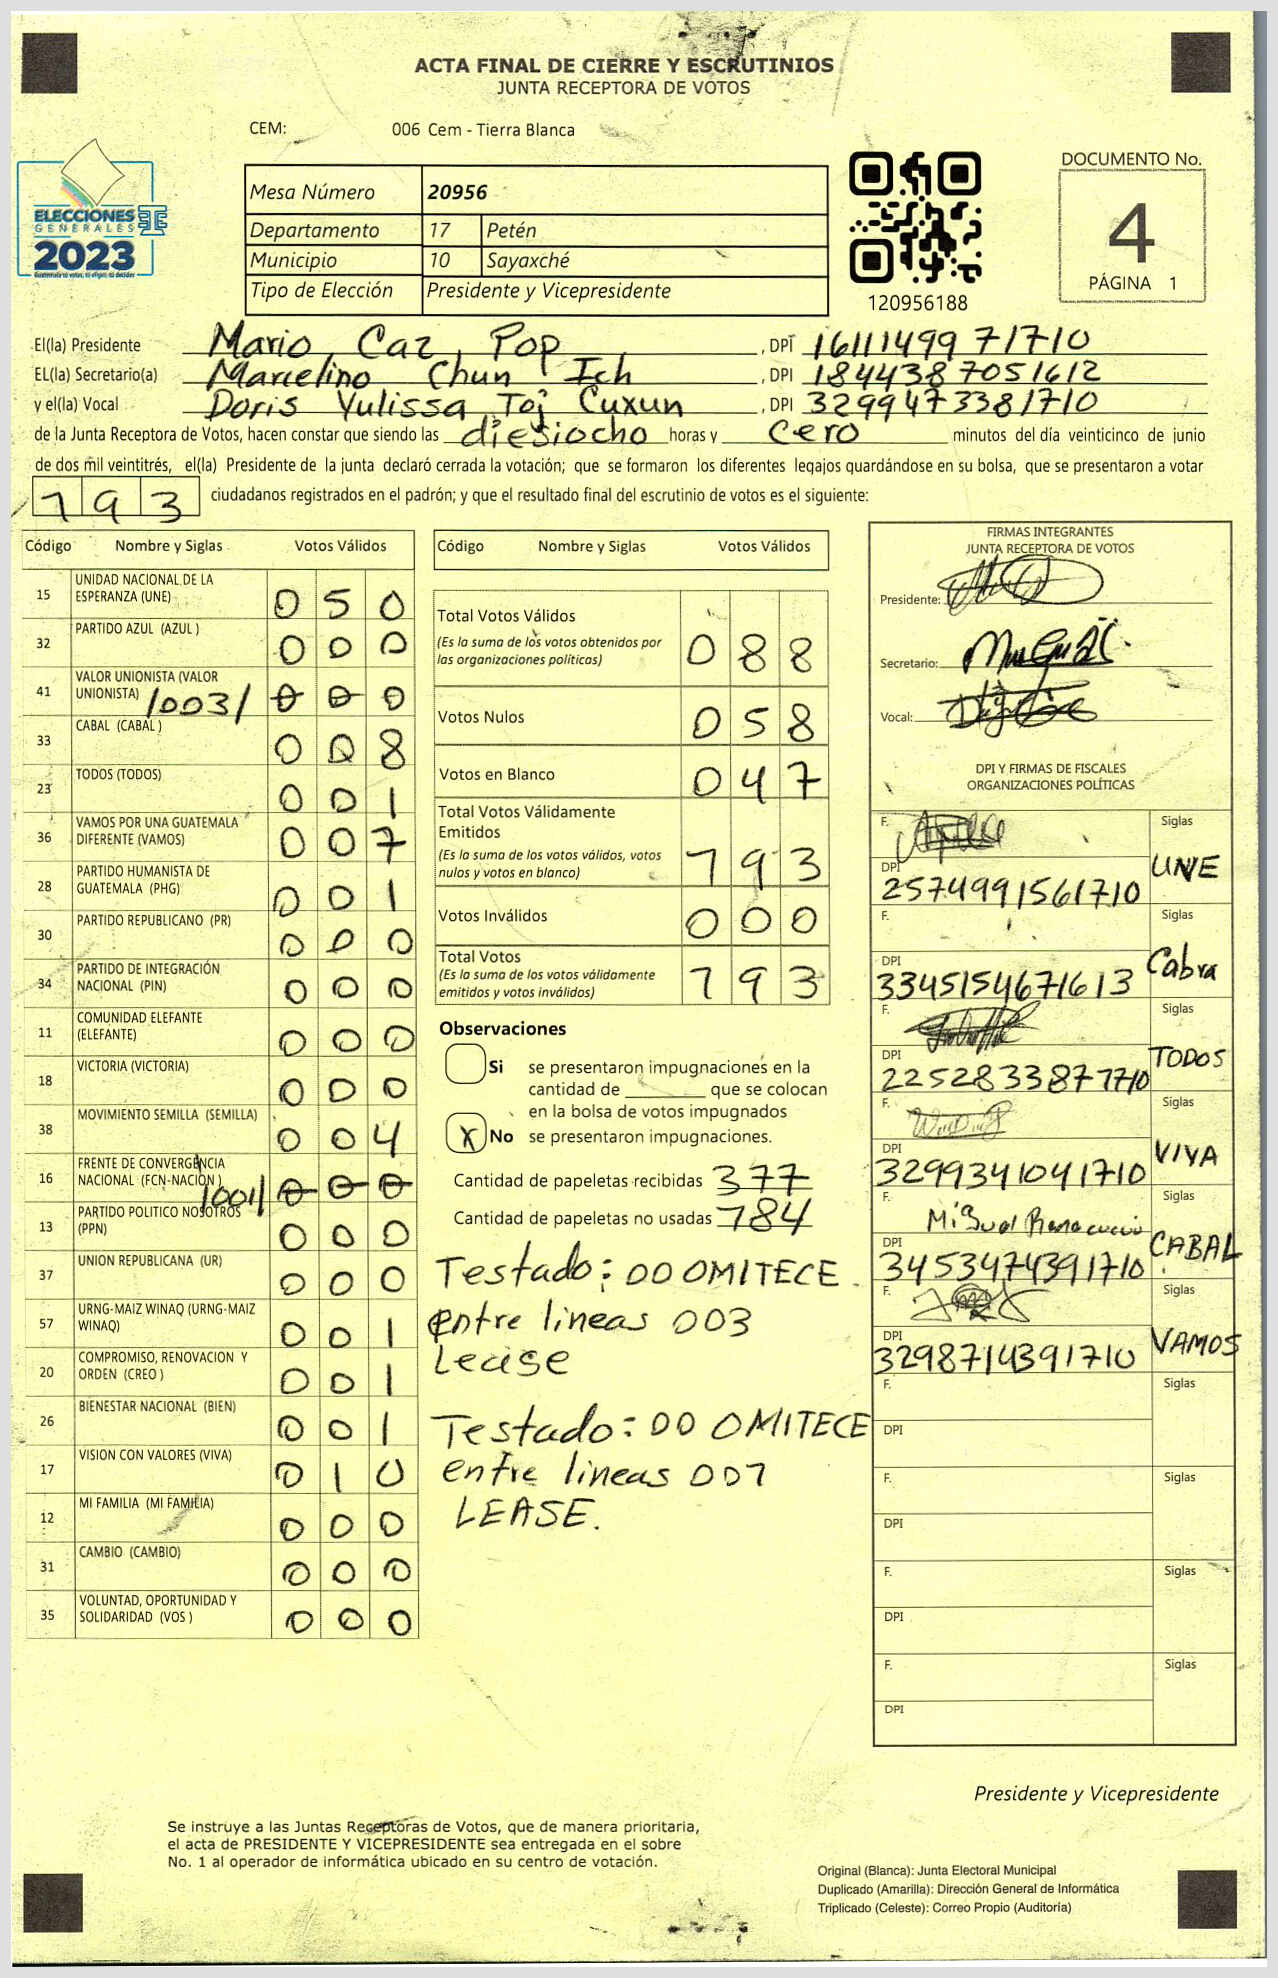 ACTA FINAL DE CIERRE Y ESCRUTINIOS
JUNTA RECEPTORA DE VOTOS
CEM: 006 Cem - Tierra Blanca
ELECCIONES
GENERALES
2023
Mesa Número 20956
Departamento 17 Petén
Municipio 10 Sayaxché
Tipo de Elección Presidente y Vicepresidente
120956188
DOCUMENTO No.
4
PÁGINA 1
El(la) Presidente Mario Caz Pop, DPI 1611149971710
EL(la) Secretario(a) Marcelino Chun Ich, DPI 1844387051612
y el(la) Vocal Doris Yulissa Toj Cuxun, DPI 3299473381710
de la Junta Receptora de Votos, hacen constar que siendo las diesiocho horas y cero minutos del día veinticinco de junio
de dos mil veintitrés, el(la) Presidente de la junta declaró cerrada la votación; que se formaron los diferentes legajos guardándose en su bolsa, que se presentaron a votar
193 ciudadanos registrados en el padrón; y que el resultado final del escrutinio de votos es el siguiente:
Código Nombre y Siglas Votos Válidos
15 UNIDAD NACIONAL DE LA ESPERANZA (UNE) 0 5 0
32 PARTIDO AZUL (AZUL ) 0 0 0
41 VALOR UNIONISTA (VALOR UNIONISTA) /003/ 0 0 0
33 CABAL (CABAL ) 0 0 8
23 TODOS (TODOS) 0 0 1
36 VAMOS POR UNA GUATEMALA DIFERENTE (VAMOS) 0 0 7
28 PARTIDO HUMANISTA DE GUATEMALA (PHG) 0 0 1
30 PARTIDO REPUBLICANO (PR) 0 0 0
34 PARTIDO DE INTEGRACIÓN NACIONAL (PIN) 0 0 0
11 COMUNIDAD ELEFANTE (ELEFANTE) 0 0 0
18 VICTORIA (VICTORIA) 0 0 0
38 MOVIMIENTO SEMILLA (SEMILLA) 0 0 4
16 FRENTE DE CONVERGENCIA NACIONAL (FCN-NACION ) /001/ 0 0 0
13 PARTIDO POLITICO NOSOTROS (PPN) 0 0 0
37 UNION REPUBLICANA (UR) 0 0 0
57 URNG-MAIZ WINAQ (URNG-MAIZ WINAQ) 0 0 1
20 COMPROMISO, RENOVACION Y ORDEN (CREO ) 0 0 1
26 BIENESTAR NACIONAL (BIEN) 0 0 1
17 VISION CON VALORES (VIVA) 0 1 0
12 MI FAMILIA (MI FAMILIA) 0 0 0
31 CAMBIO (CAMBIO) 0 0 0
35 VOLUNTAD, OPORTUNIDAD Y SOLIDARIDAD (VOS ) 0 0 0
Código Nombre y Siglas Votos Válidos
Total Votos Válidos 0 8 8
(Es la suma de los votos obtenidos por
las organizaciones políticas)
Votos Nulos 0 5 8
Votos en Blanco 0 4 7
Total Votos Válidamente
Emitidos 1 9 3
(Es la suma de los votos válidos, votos
nulos y votos en blanco)
Votos Inválidos 0 0 0
Total Votos 1 9 3
(Es la suma de los votos válidamente
emitidos y votos inválidos)
Observaciones
Si se presentaron impugnaciones en la
cantidad de ______ que se colocan
en la bolsa de votos impugnados
X No se presentaron impugnaciones.
Cantidad de papeletas recibidas 377
Cantidad de papeletas no usadas 184
Testado: 00 OMITECE
entre lineas 003
Lease
Testado: 00 OMITECE
entre lineas 001
LEASE.
FIRMAS INTEGRANTES
JUNTA RECEPTORA DE VOTOS
Presidente:
Secretario:
Vocal:
DPI Y FIRMAS DE FISCALES
ORGANIZACIONES POLÍTICAS
F. Siglas
DPI 2574991561710 UNE
F. Siglas
DPI 3345154671613 Cabra
F. Siglas
DPI 2252833877710 TODOS
F. Siglas
DPI 3299341041710 VIVA
F. Siglas
DPI 3453474391710 CABAL
F. Siglas
DPI 3298714391710 VAMOS
F. Siglas
DPI
F. Siglas
DPI
F. Siglas
DPI
F. Siglas
DPI
Presidente y Vicepresidente
Se instruye a las Juntas Receptoras de Votos, que de manera prioritaria,
el acta de PRESIDENTE Y VICEPRESIDENTE sea entregada en el sobre
No. 1 al operador de informática ubicado en su centro de votación.
Original (Blanca): Junta Electoral Municipal
Duplicado (Amarilla): Dirección General de Informática
Triplicado (Celeste): Correo Propio (Auditoría)